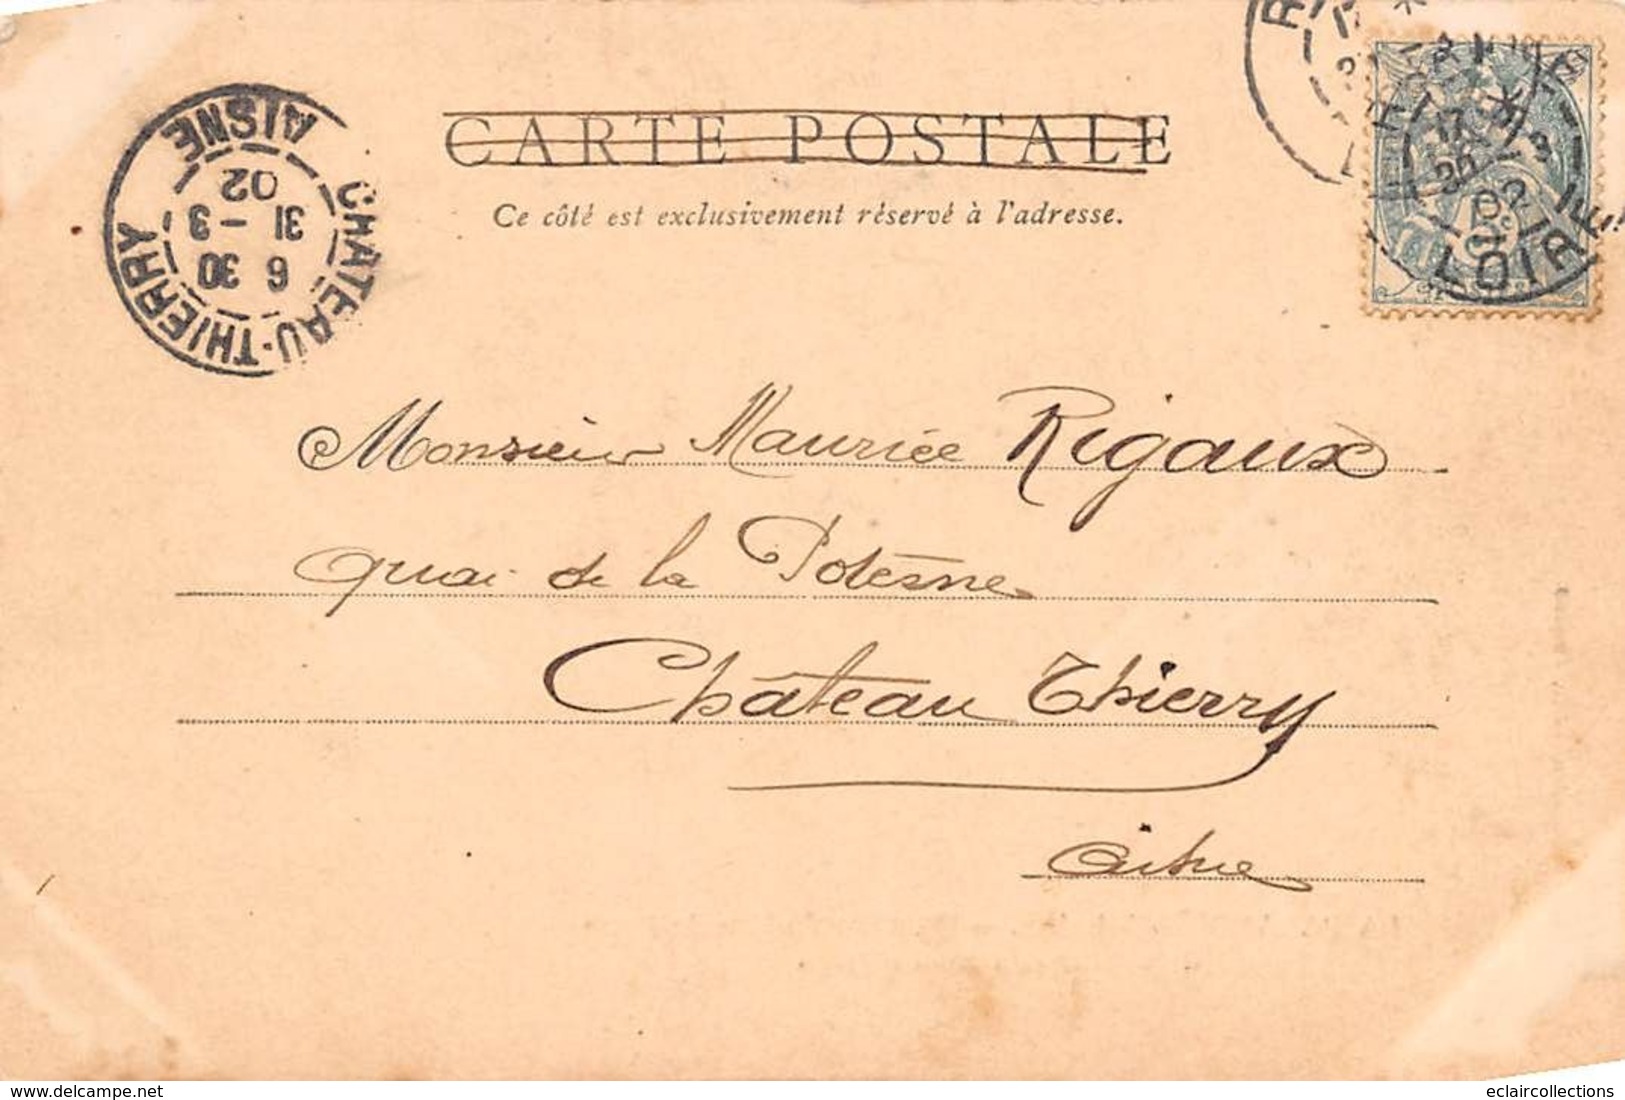 CARTE POSTALE
Ce côté est exclusivement réservé à l'adresse.
CHATEAU-THIERRY
AISNE
6 30
31 - 3
02
17
30 3
02
LOIRE
Monsieur Maurice Rigaux
quai de la Poterne
Château Thierry
Aisne
www.delcampe.net
eclaircollections